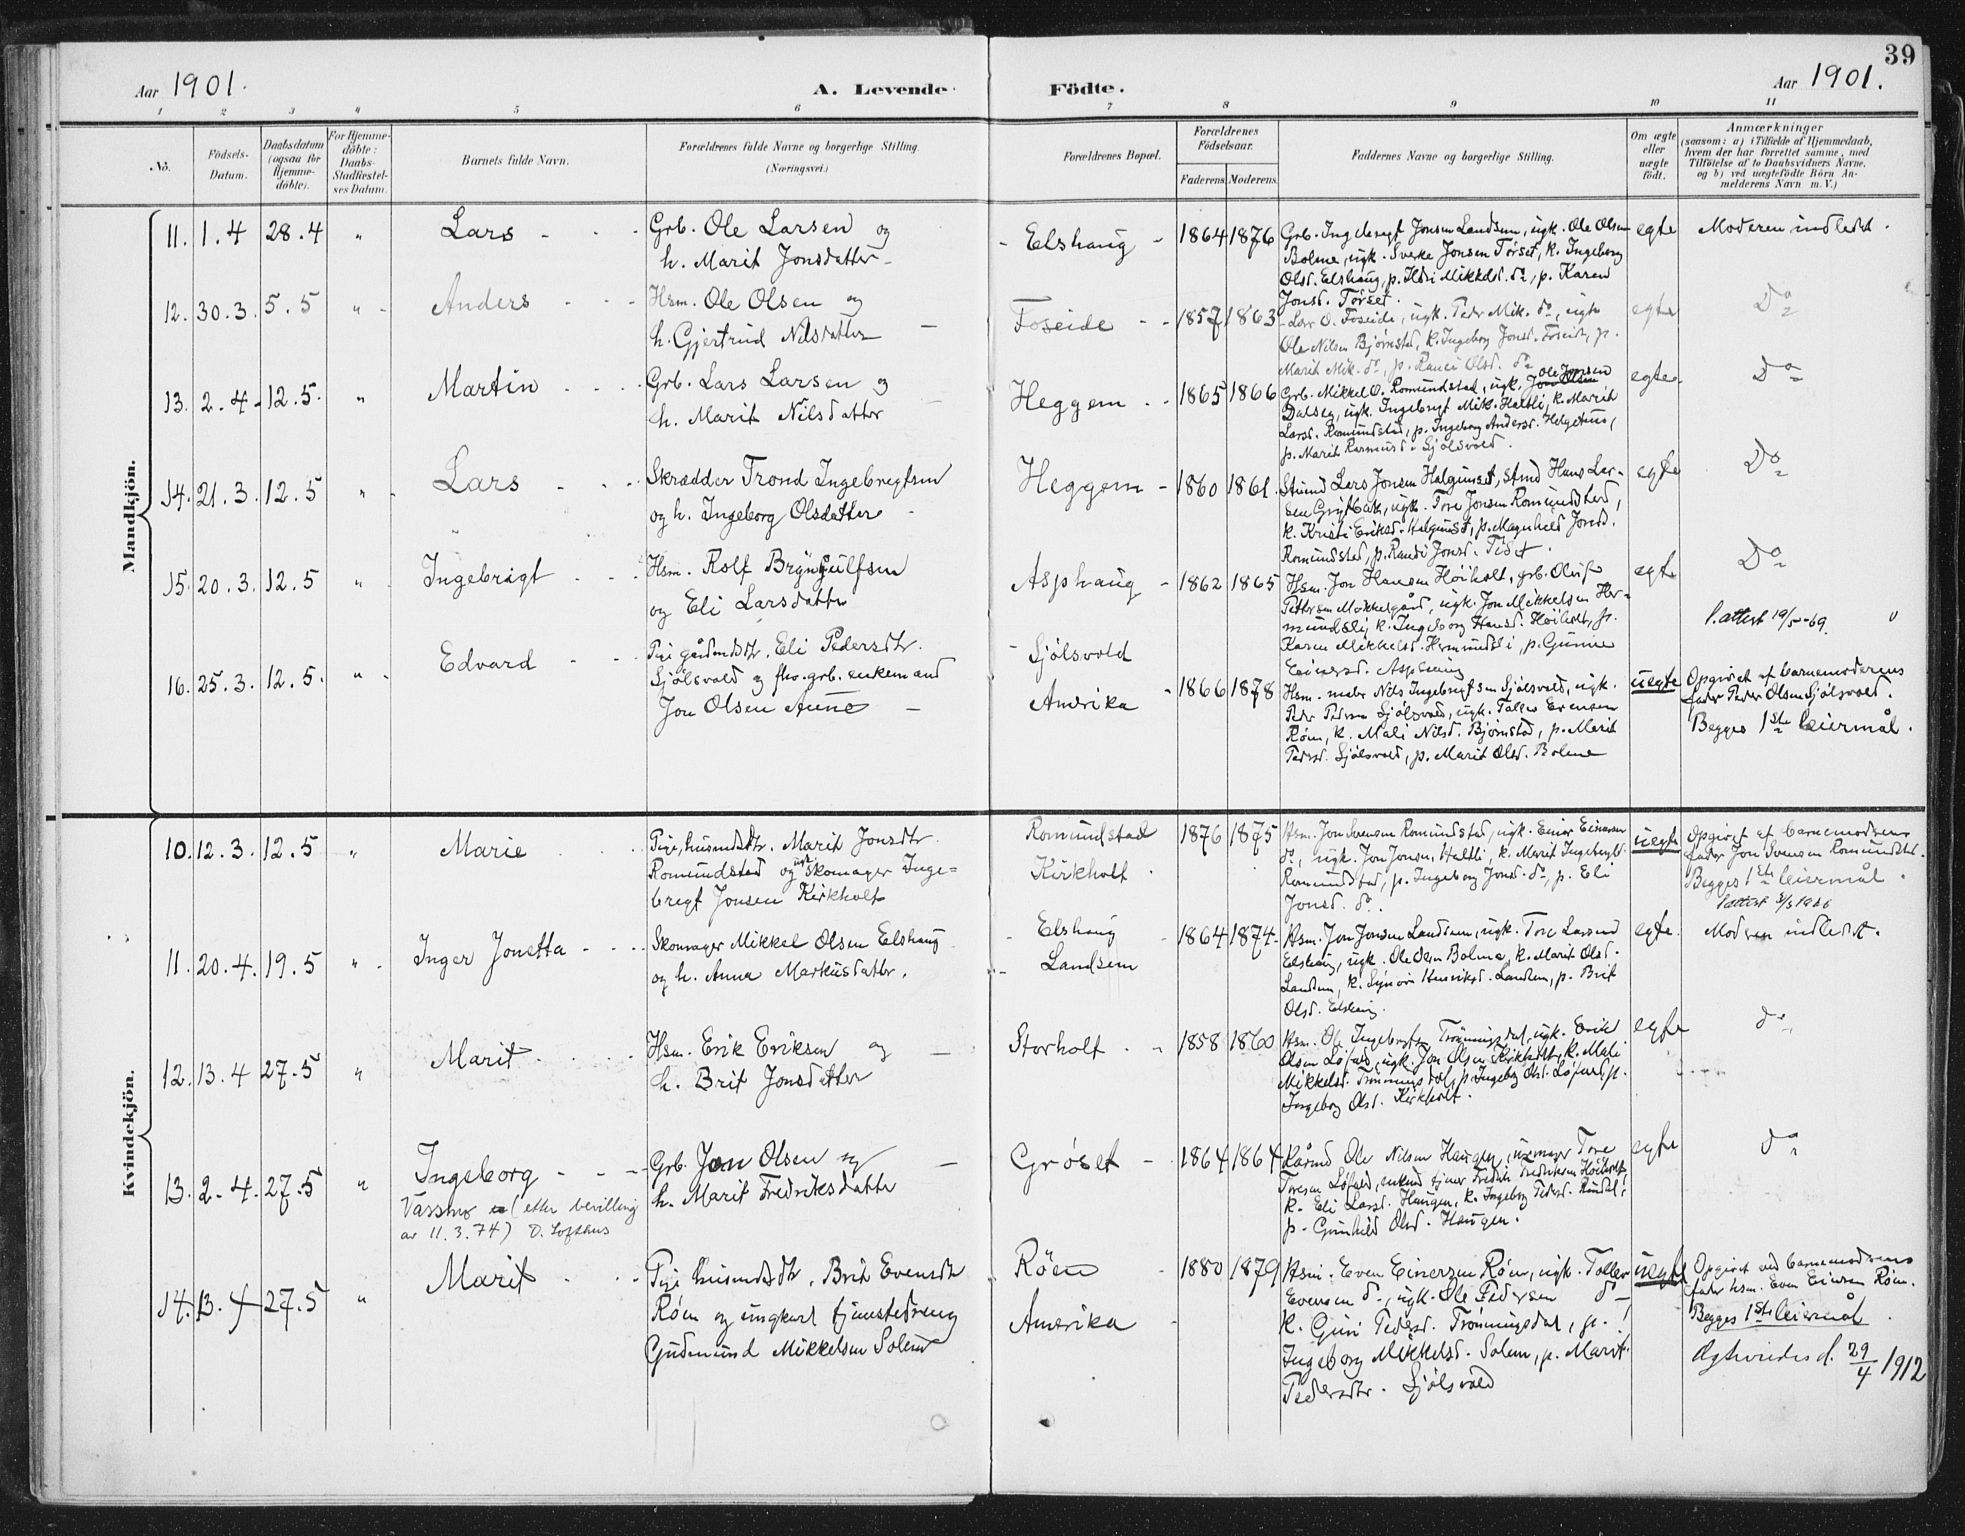 39
Aar 1901. A. Levende Födte. Aar 1901.
1 2 3 4 5 6 7 8 9 10 11
No. Födsels-Datum. Daabsdatum (ogsaa for Hjemme-döbte). For Hjemme-döbte: Daabs-Stadfæstel-ses Datum. Barnets fulde Navn. Forældrenes fulde Navne og borgerlige Stilling. (Næringsvei.) Forældrenes Bopæl. Forældrenes Födselsaar. Faderens Moderens Faddernes Navne og borgerlige Stilling. Om ægte eller uægte födt. Anmærkninger
(saasom: a) i Tilfælde af Hjemmedaab,
hvem der har forrettet samme, med
Tilföielse af to Daabsvidners Navne,
og b) ved uægtefödte Börn An-
melderens Navn m. V.)
Mandkjön.
11. 1.4 28.4 " Lars - - - Grb. Ole Larsen og
h. Marit Jonsdatter -
- Elshaug - 1864 1876 Grb. Ingebrigt Jonsen Landsem, ugk. Ole Olsen
Bolme, ugk. Sverke Jonsen Tørset, k. Ingeborg
Olsd. Elshaug, p. Mikkelsd. do, p. Karen
Jonsd. Tørset.
egte Moderen indledet.
12. 30.3. 5.5 " - Anders - - - Hsm. Ole Olsen og
h. Gjertrud Nilsdatter -
Foseide - - 1857 1863 - Lars O. Foseide, ugk. Peder Mik. do, ugk
Ole Nilsen Bjørnstad, k. Ingeborg Jonsd. Foseide, p.
Marit Mik. do, p. Olsd. do
egte Do
13. 2.4 - 12.5. " Martin - - - - Grb. Lars Larsen og
h. Marit Nilsdatter
Heggem - - 1865 1866 Grb. Mikkel O. Romundstad, ugk. Ole Jonsen
Dalseg, ugk. Ingebrigt Mik. Haltli, k. Marit
Larsd. Romundstad, p. Ingeborg Andersd. Helgetun,
p. Marit Rasmusd. Sjølsvold.
egte Do
14. 21.3. 12.5 " - Lars - - - Skrædder Trond Ingebregtsen
og h. Ingeborg Olsdatter -
Heggem - 1860 1861. Lars Jonsen Halgunset, Hans Lar-
sen Grytbak, ugk. Tore Jonsen Romundstad,
k. Kristi Eriksd. Halgunset, p. Magnhild Jonsd.
Romundstad, p. Randi Jonsd.
egte Do
15. 20.3. 12.5 " Ingebrigt - - - Hsm. Rolf Bryngulfsen
og Eli Larsdatter
Asphaug - 1862 1865 Hsm. Jon Hansen Høiholt, grb. Oluf
Pettersen Mokkelgård, ugk. Jon Mikkelsen Her-
mundsli, k. Ingeborg Hansd. Høiholt, p.
Karen Mikkelsd. Hermundsli, p. Gunne
Einersd. Asphaug
egte Do
P.attest 19/5-69.
16. 25.3. 12.5. " - Edvard - - Pige gårdmdtr. Eli Pedersdtr.
Sjölsvold og fho. grb. enkemand
Jon Olsen Aune -
- Sjölsvold
Amerika - 1866 1878 Hsm. maler Nils Ingebrigtsen Sjølsvold, ugk.
Peder Pedersen Sjølsvold, ugk. Tollev Evensen
Røen, k. Mali Nilsd. Bjørnstad, p. Marit
Pedersd. Sjølsvold, p. Marit Olsd. Bolme
uegte Opgivet af barnemoderens
fader Peder Olsen Sjølsvold.
Begges 1ste leiermål.
Kvindekjön.
10. 12.3. 12.5 " Marie Pige, husmdsdtr. Marit Jonsdtr.
Romundstad og ugk. skomager Inge=
brigt Jonsen Kirkholt
Romundstad
Kirkholt. 1876 1875 Hsm. Jon Svensen Romundstad, ugk. Einar Einarsen
do, ugk. Jon Jonsen Haltli, k. Marit Ingebrigtsd.
Romundstad, p. Ingeborg Jonsd. do, p. Eli
Jonsd. do.
uegte Opgivet af barnemoderens
fader Jon Svensen Romundstad.
Begges 1ste leiermål.
P.attest 3/3 1966
11. 20.4. 19.5 " - Inger Jonetta - - Skomager Mikkel Olsen Elshaug
og h. Anna Markusdatter.
- Elshaug
- Landsem 1864 1874 - Hsm. Jon Jonsen Landsem, ugk. Tore Larsen
Elshaug, ugk. Ole Olsen Bolme, k. Marit Olsd.
Landsem, k. Synnøv Henriksd. Landsem, p. Brit
Olsd. Elshaug.
egte. Moderen indledet.
12. 13.4 27.5 " Marit - - - - Hsm. Erik Eriksen og
h. Brit Jonsdatter
Storholt - - 1858 1860 Hsm. Ole Ingebrigtsen Trønningsdal, ugk. Erik
Olsen Løfald, ugk. Jon Olsen Kirkholt, k. Mali
Mikkelsd. Trønningsdal, p. Ingeborg Olsd. Løfald, p.
Ingeborg Olsd. Kirkholt.
egte do
13. 2.4. 27.5 " Ingeborg - - - Grb. Jon Olsen og
h. Marit Fredriksdatter
Vassmo (etter bevilling
av 11.3.74) O. Lofthus
Grøset - 1864 1864 Kårmd Ole Nilsen Haugen, Tore
Toresen Løfald, enkemd tjener Fredrik Fredriksen Høiholt,
k. Eli Larsd. Haugen, k. Ingeborg Pedersd. Rindal,
p. Gunhild Olsd. Haugen.
egte do
14. 13.4 27.5 " Marit - - - Pige husmdsdtr. Brit Evensdtr
Røen og ungkarl tjenestedreng
Gudmund Mikkelsen Solem
Røen -
Amerika - 1880 1879 Hsm. Even Einersen Røen, ugk. Tollev
Evensen do, ugk. Ole Pedersen do,
k. Guri Pedersd. Trønningsdal, p.
Ingeborg Mikkelsd. Solem, p. Marit
Pedersdtr. Sjölsvold
uegte Opgivet ved barnemoderens
fader hsm. Even Einersen Røen.
Begges 1ste leiermål.
Ægteviedes d. 29/4 1912